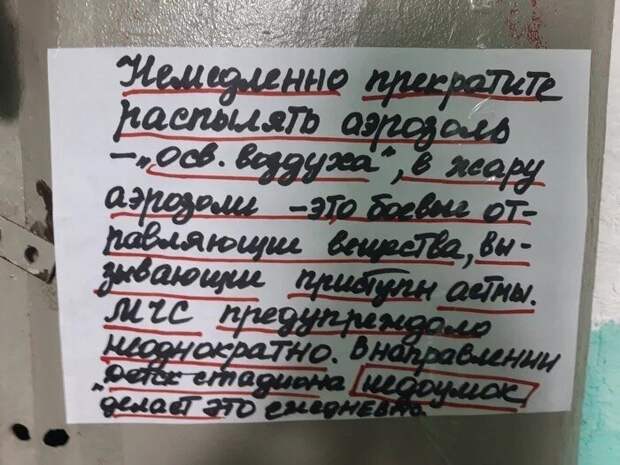 Немедленно прекратите
распылять аэрозоль
–„осв. воздуха“, в жару
аэрозоли – это боевые от-
равляющие вещества, вы-
зывающии приступы астмы.
МЧС предупреждало
неоднократно. В направлении
"детск стадиона недоумок
делает это ежедневно.